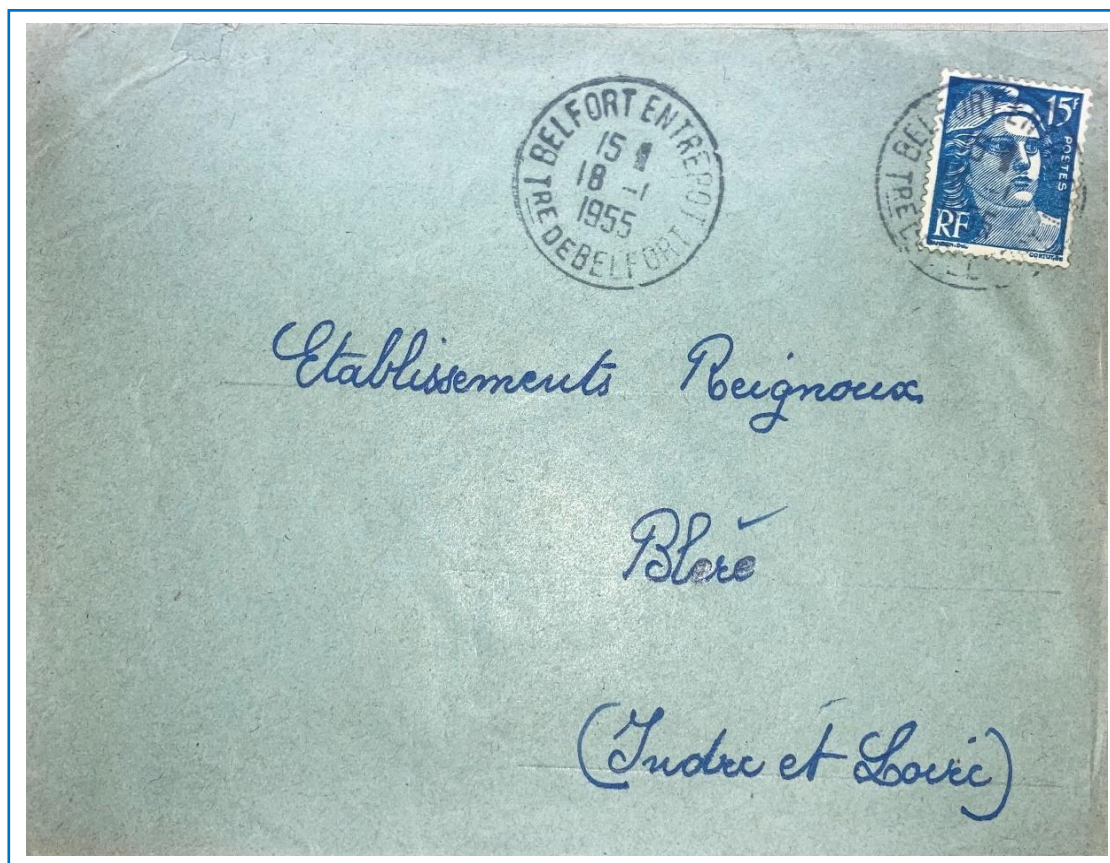 BELFORT ENTREPOT
15
18 -1
1955
TRE DE BELFORT
15F
POSTES
RF
BELFORT
TRE
Etablissements Reignoux
Bléré
(Indre et Loire)